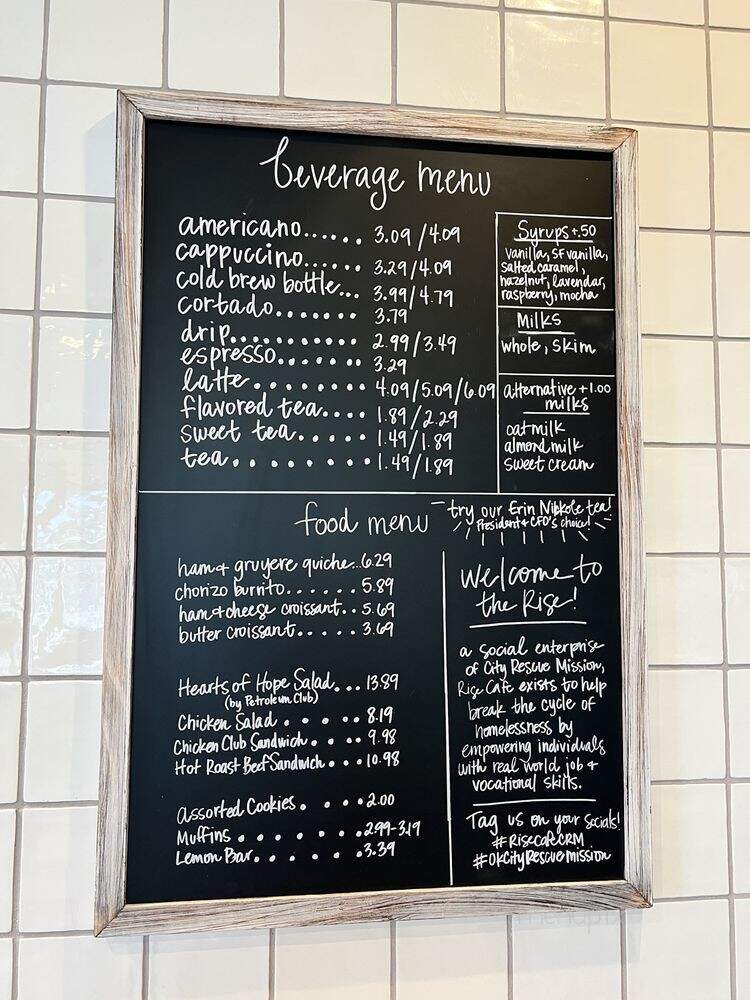 beverage menu
americano...... 3.09/4.09
cappuccino....... 3.29/4.09
cold brew bottle... 3.99/4.79
cortado....... 3.79
drip............ 2.99/3.49
espresso....... 3.29
latte........ 4.09/5.09/6.09
flavored tea.... 1.89/2.29
sweet tea..... 1.49/1.89
tea........ 1.49/1.89
Syrups +.50
vanilla, SF vanilla,
salted caramel,
hazelnut, lavendar,
raspberry, mocha
Milks
whole, skim
alternative +1.00
milks
oatmilk
almond milk
sweet cream
food menu
try our Erin Nikkole tea!
President & CFO's choice!
ham + gruyere quiche...6.29
chorizo burrito...... 5.89
ham + cheese croissant.. 5.69
butter croissant..... 3.69
Hearts of Hope Salad... 13.89
(by Petroleum Club)
Chicken Salad..... 8.19
Chicken Club Sandwich.... 9.98
Hot Roast Beef Sandwich... 10.98
Assorted Cookies....2.00
Muffins....... 2.99-3.19
Lemon Bar...... 3.39
Welcome to
the Rise!
a social enterprise
of City Rescue Mission,
Rise Cafe exists to help
break the cycle of
homelessness by
empowering individuals
with real world job +
vocational skills.
Tag us on your socials!
#RisecafeCRM
#OKCityRescuemission